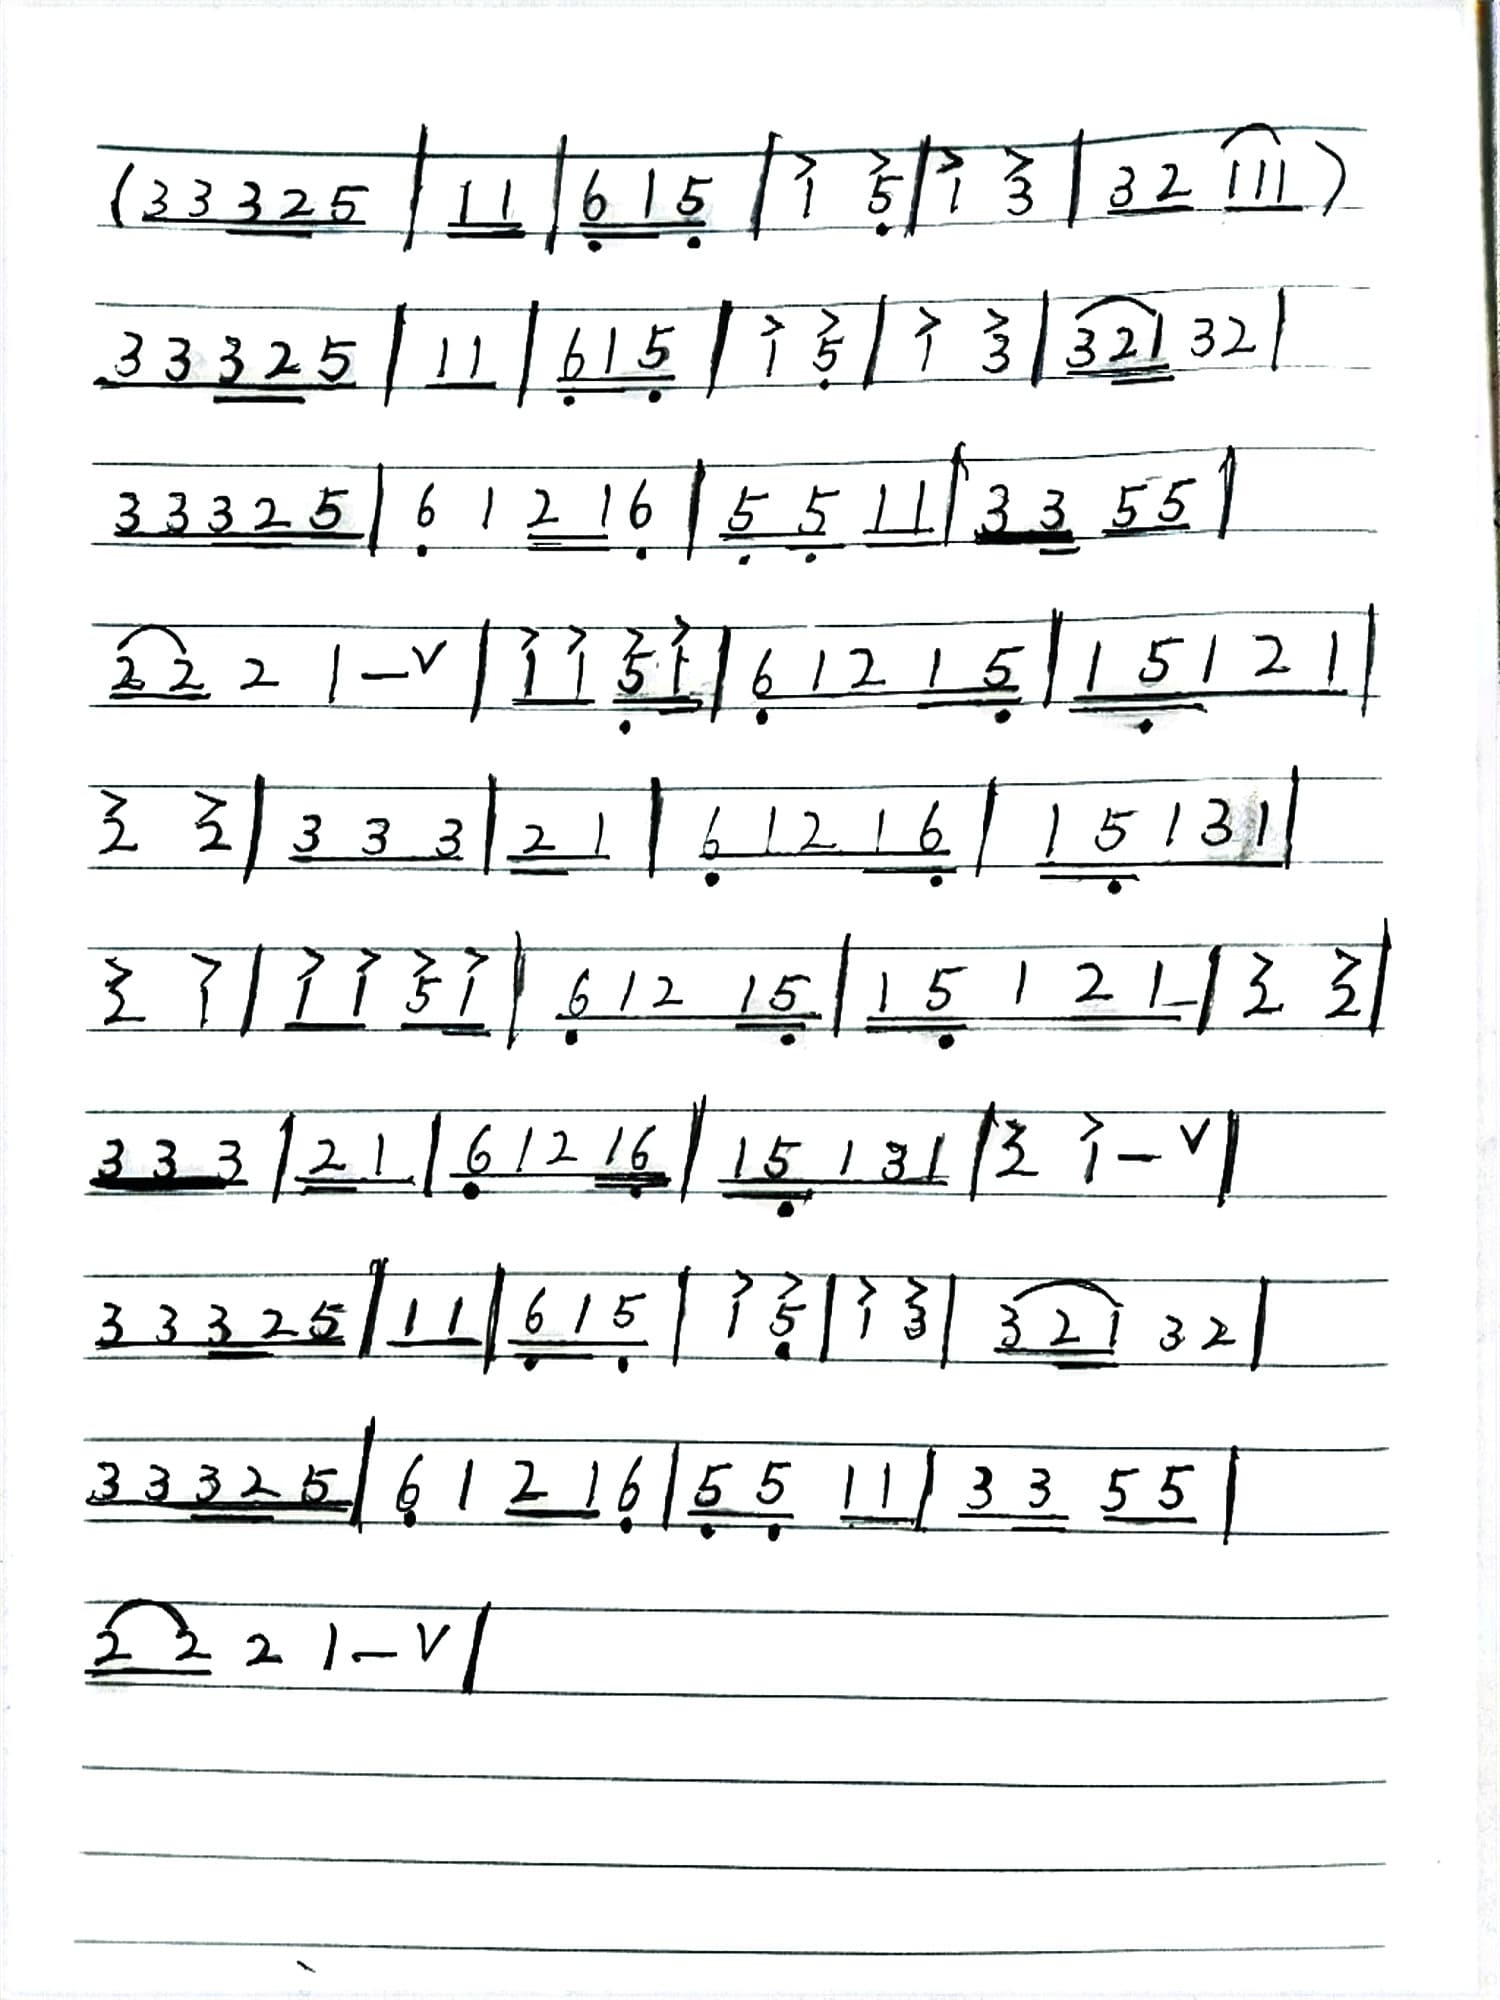 (33325|11|615|1 5|1 3|32 111)
33325|11|615|1 5|1 3|321 32|
33325|6 1 216|55 11|33 55|
22 2 1-V|11 51|61215|15121|
2 2|3 3 3|2 1|61216|15131|
2 1|11 51|612 15|15 1 21|2 2|
3 3 3|21|61216|15131|2 1-V|
33325|11|615|1 5|1 3|321 32|
33325|6 1 216|55 11|33 55|
22 2 1-V|